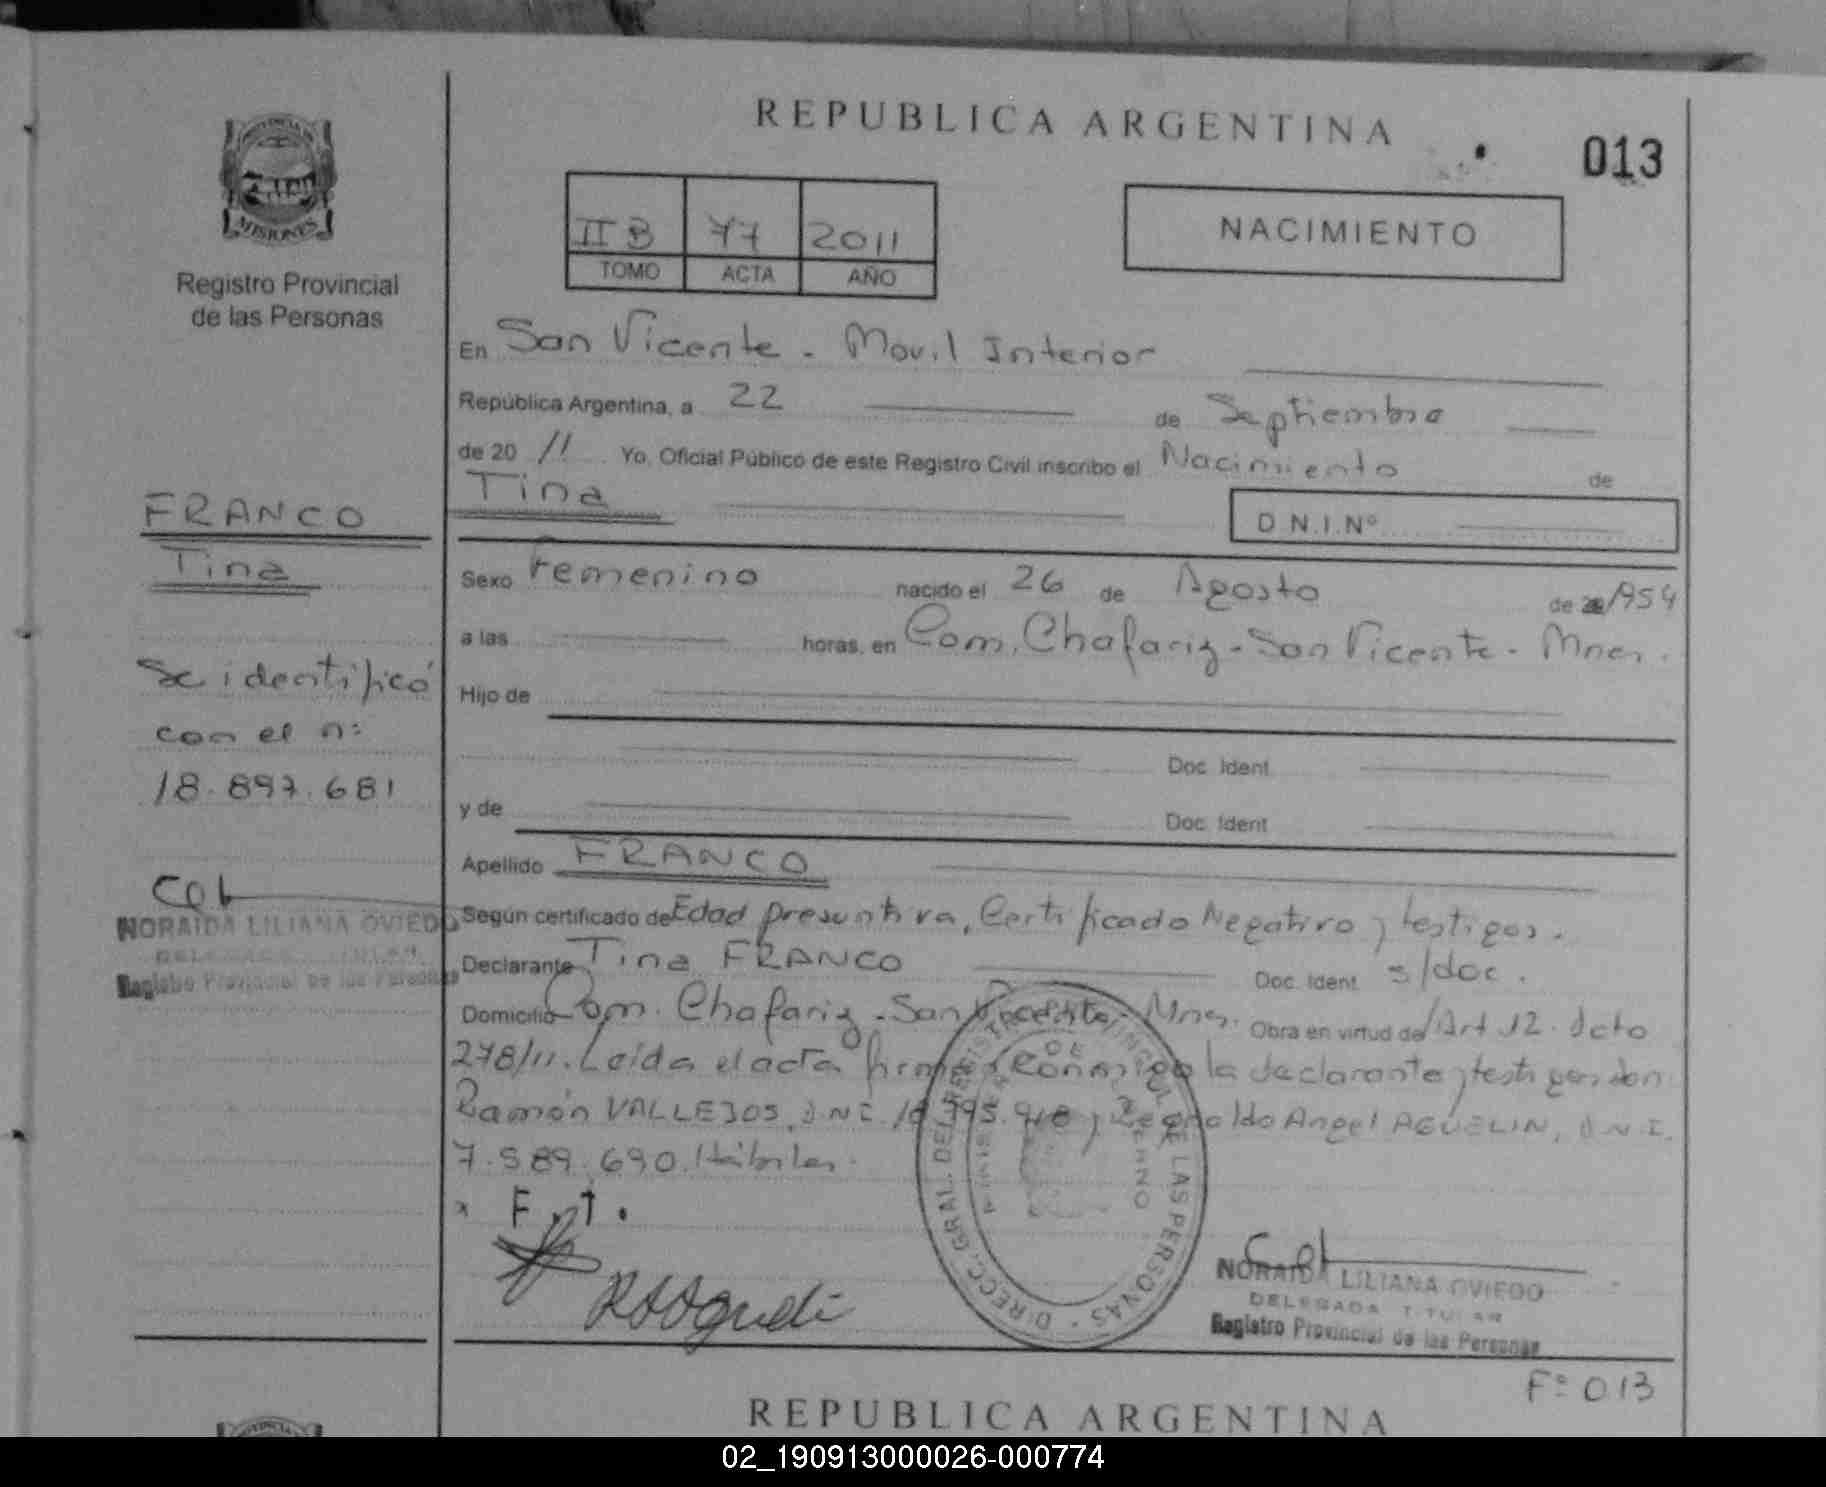 REPUBLICA ARGENTINA
013
PROVINCIA DE
MISIONES
Registro Provincial
de las Personas
II B 77 2011
TOMO ACTA AÑO
NACIMIENTO
En San Vicente - Movil Interior
República Argentina, a 22 de Septiembre
de 20 11 Yo, Oficial Público de este Registro Civil inscribo el Nacimiento de
Tina
D.N.I.Nº
FRANCO
Tina
Se identificó
con el n:
18.897.681
NORAIDA LILIANA OVIEDO
DELEGADA TITULAR
Registro Provincial de las Personas
Sexo Femenino nacido el 26 de Agosto de 1954
a las horas, en Com. Chafariz - San Vicente - Mnes.
Hijo de
Doc. Ident.
y de Doc. Ident.
Apellido FRANCO
Según certificado de Edad presuntiva, Certificado Negativo y testigos.
Declarante Tina FRANCO Doc. Ident. s/doc.
Domicilio Com. Chafariz - San Vicente - Mnes. Obra en virtud de Art 12. Dcto
278/11. Leída el acta firma conmigo la declarante y testigos don
Ramón VALLEJOS, D.N.I. y Angel AGUELIN, D.N.I.
7.589.690. Hábiles.
x F. T.
DIRECC. GRAL. DEL REGISTRO PROVINCIAL DE LAS PERSONAS
MINISTERIO DE GOBIERNO
NORAIDA LILIANA OVIEDO
DELEGADA TITULAR
Registro Provincial de las Personas
Fº 013
REPUBLICA ARGENTINA
02_190913000026-000774